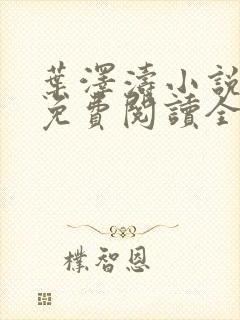 葉澤濤小說
免費閱讀全
樸智恩